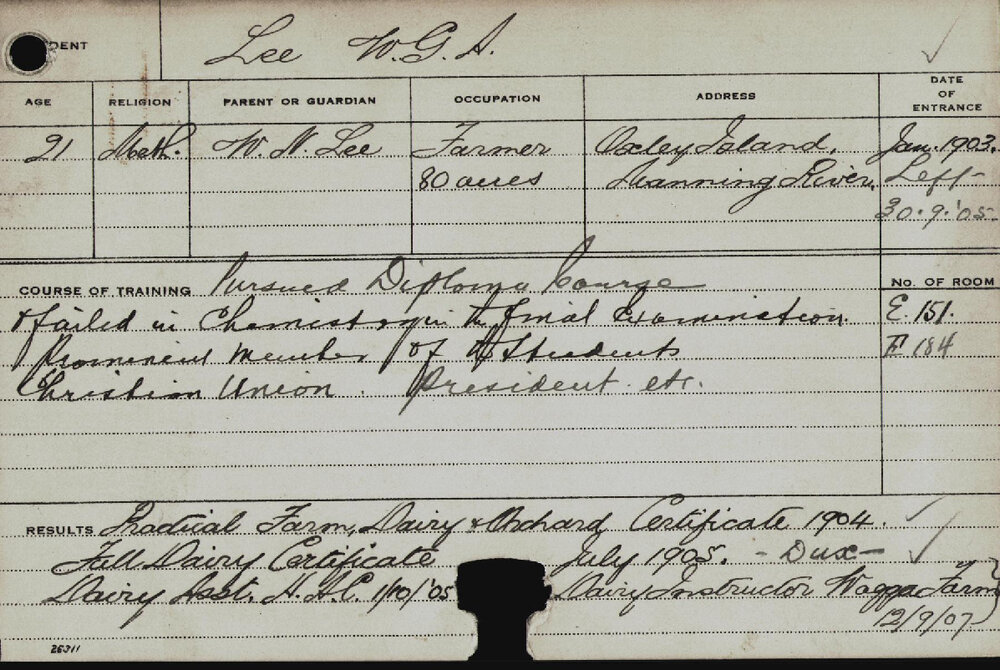 DENT Lee W.G.A.
AGE RELIGION PARENT OR GUARDIAN OCCUPATION ADDRESS DATE OF ENTRANCE
21 Meth. W. N. Lee Farmer Oxley Island, Jan. 1903.
80 acres Manning River. Left
30.9.'05
COURSE OF TRAINING Pursued Diploma Course No. OF ROOM
& failed in Chemistry in the final Examination E. 151.
Prominent member of the Students E 184
Christian Union. President etc.
RESULTS Practical Farm, Dairy & Orchard Certificate 1904.
Full Dairy Certificate July 1905. - Dux -
Dairy Asst. H.A.C. 1/10/'05 Dairy Instructor Wagga Farm
12/9/07
26311